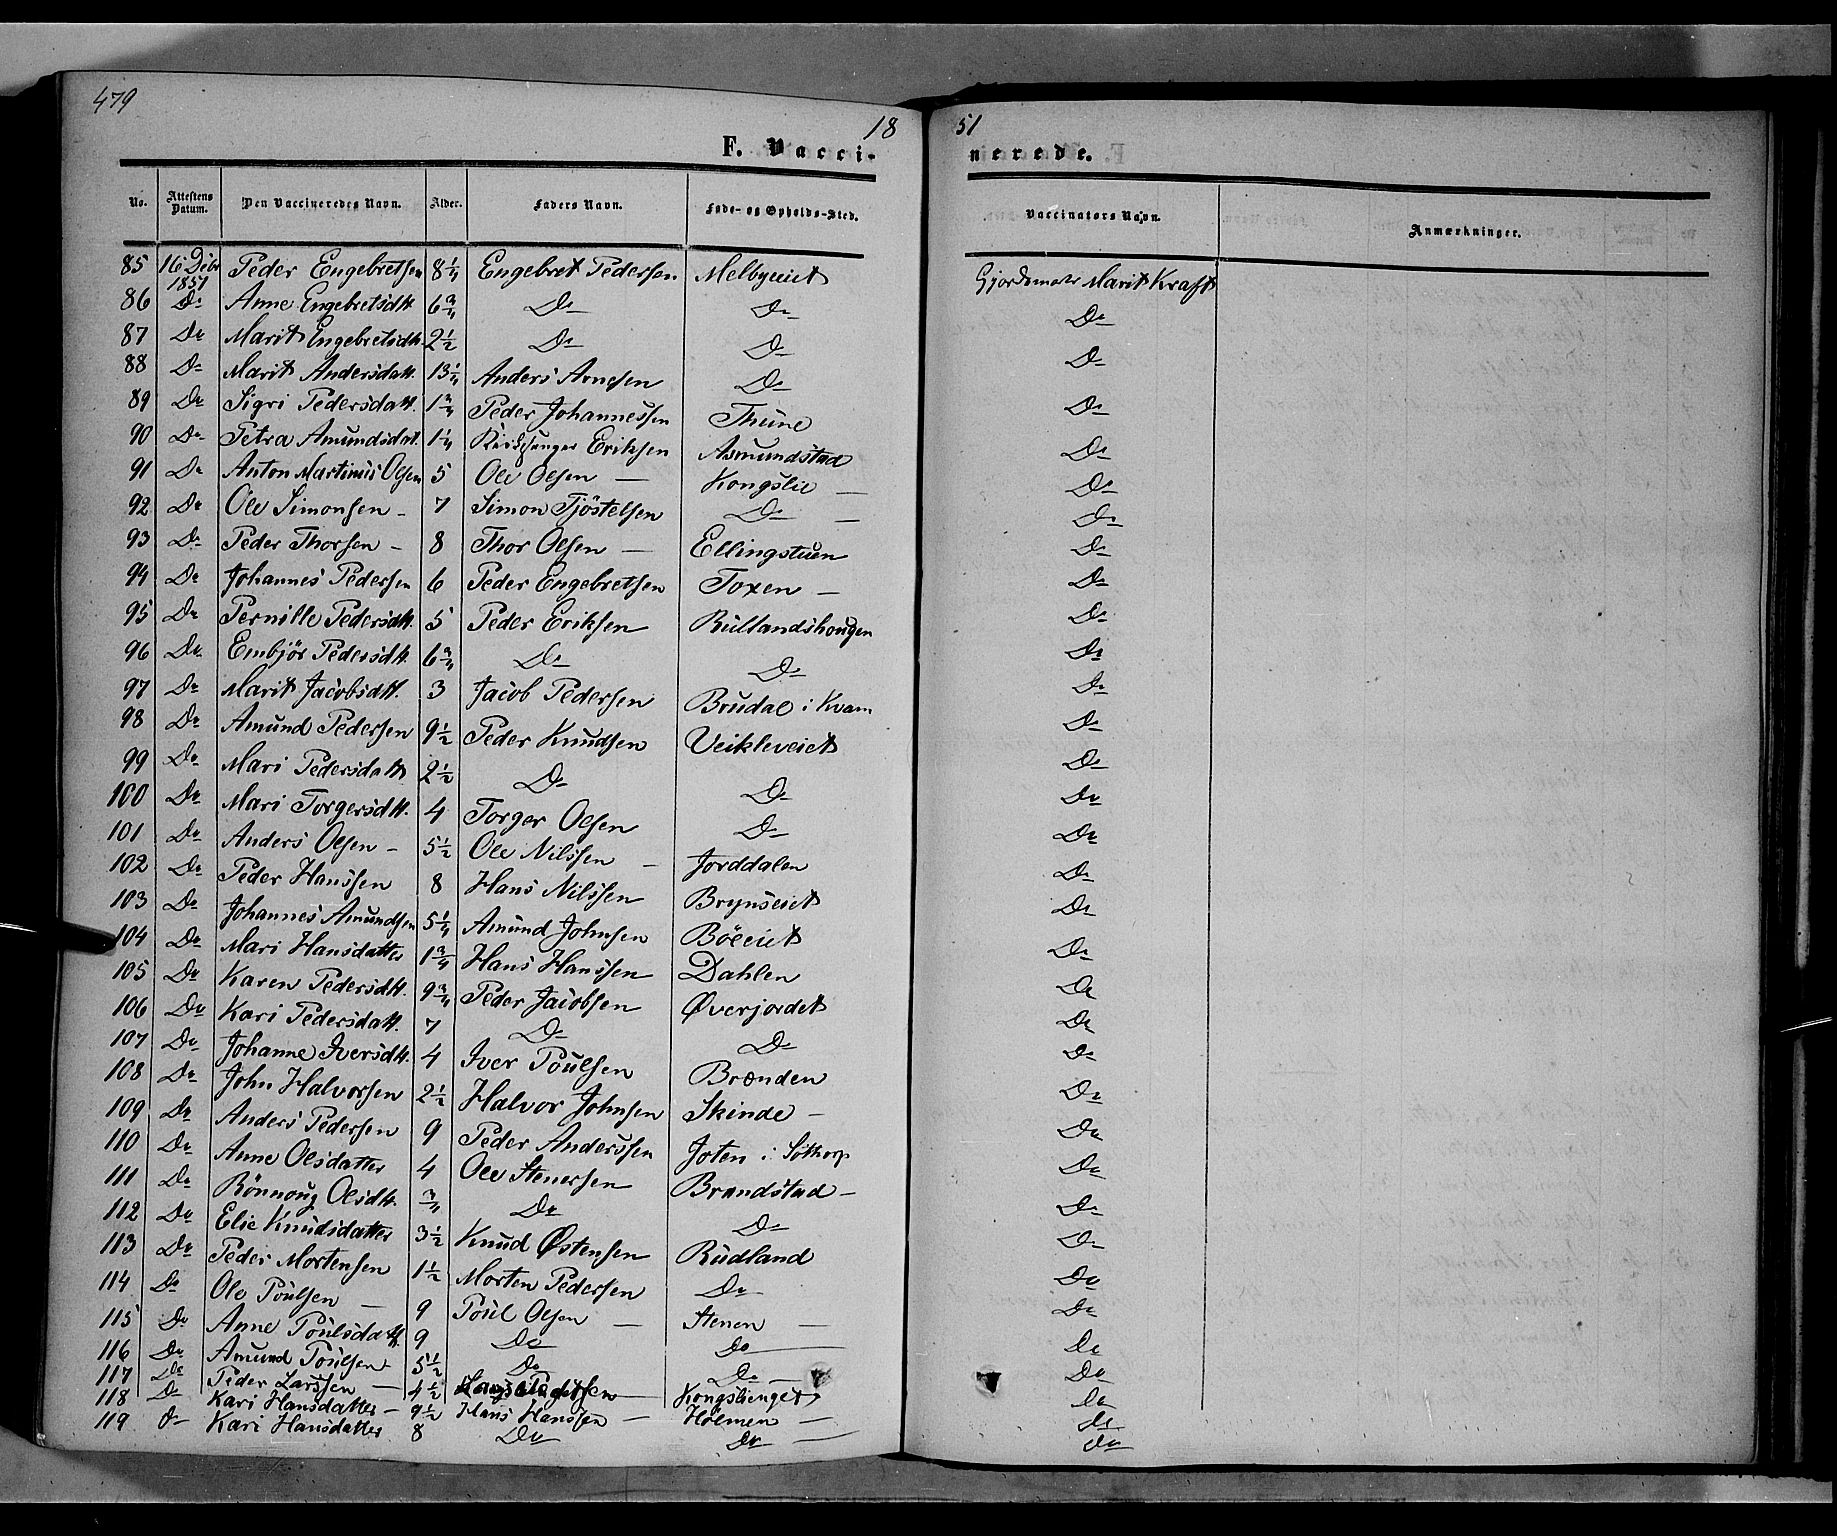 479
18 51
F. Vaccinerede.
No. Attestens Datum. Den Vaccineredes Navn. Alder. Faders Navn. Føde- og Opholds-Sted. Vaccinators Navn. Anmærkninger.
85 16 Debr 1851 Peder Engebretsen 8 1/4 Engebret Pedersen Melbyeiet Gjordemoder Marit Kraft
86 Do Anne Engebretsdtt. 6 3/4 Do Do Do
87 Do Marit Engebretsdtt. 2 1/2 Do Do Do
88 Do Marit Andersdatt. 13 1/4 Anders Arnesen Do Do
89 Do Sigri Pedersdatt. 1 3/4 Peder Johannessen Thune Do
90 Do Petra Amundsdat. 1 1/4 Kirkesanger Eriksen Asmundstad Do
91 Do Anton Martinus Olsen 5 Ole Olsen — Kongslie — Do
92 Do Ole Simonsen - 7 Simon Tjöstelsen Do — Do
93 Do Peder Thorsen - 8 Thor Olsen — Ellingstuen Do
94 Do Johannes Pedersen 6 Peder Engebretsen Toxen — Do
95 Do Pernille Pedersdtt. 5 Peder Eriksen Rullandshougen Do
96 Do Embjör Pedersdtt. 6 3/4 Do Do Do
97 Do Marit Jacobsdtt. 3 Jacob Pedersen Brudal i Kvam Do
98 Do Amund Pedersen 9 1/2 Peder Knudsen Veikleveiet Do
99 Do Mari Pedersdatt 2 1/2 Do Do Do
100 Do Mari Torgersdtt. 4 Torger Olsen Do Do
101 Do Anders Olsen - 5 1/2 Ole Nilssen — Jorddalen Do
102 Do Peder Hanssen 8 Hans Nilssen Brynseiet Do
103 Do Johannes Amundsen 5 1/4 Amund Johnsen Böleiet Do
104 Do Mari Hansdatter 1 3/4 Hans Hanssen Dahlen Do
105 Do Karen Pedersdtt. 9 3/4 Peder Jacobsen Øverjordet Do
106 Do Kari Pedersdatt. 7 Do Do Do
107 Do Johanne Iversdtt. 4 Iver Poulsen Brænden Do
108 Do John Halvorsen 2 1/2 Halvor Johnsen Skinde — Do
109 Do Anders Pedersen 9 Peder Anderssen Joten i Sötkorp Do
110 Do Anne Olsdatter 4 Ole Stenersen Brandstad — Do
111 Do Rönnoug Olsdtt. 3/4 Do Do Do
112 Do Elie Knudsdatter 3 1/2 Knud Østensen Rudland Do
113 Do Peder Mortensen 1 1/2 Morten Pedersen Do Do
114 Do Ole Poulsen — 9 Poul Olsen — Stenen — Do
115 Do Anne Poulsdatt. 9 Do Do Do
116 Do Amund Poulsen 5 1/2 Do Do — Do
117 Do Peder Larssen — 4 1/2 Kongslienget Do
118 Do Kari Hansdatter — 9 1/2 Hans Hanssen — Holmen — Do
119 Do Kari Hansdatter 8 Do Do — Do